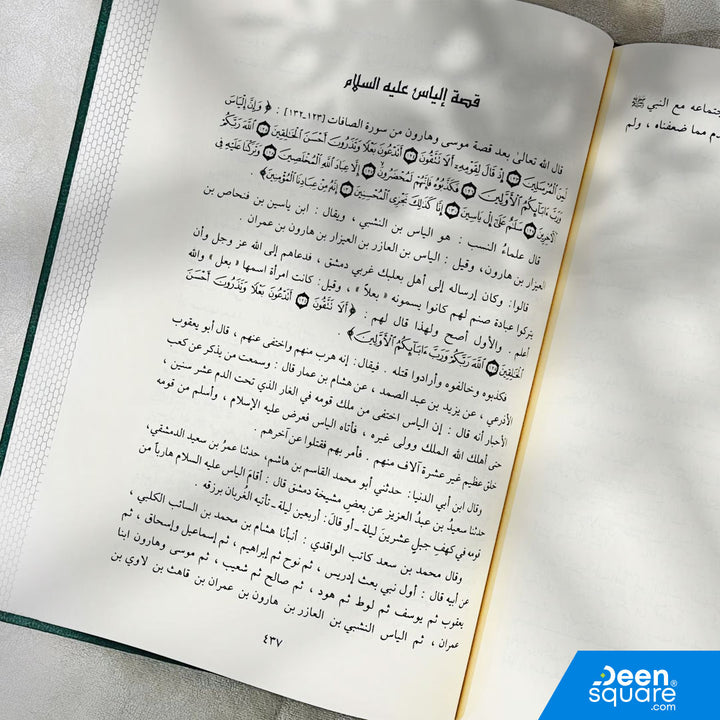 قصة إلياس عليه السلام
قال الله تعالى بعد قصة موسى وهارون من سورة الصافات [١٢٣-١٣٢] : ﴿ وَإِنَّ إِلْيَاسَ
لَمِنَ ٱلْمُرْسَلِينَ ﴿١٢٣﴾ إِذْ قَالَ لِقَوْمِهِۦٓ أَلَا تَتَّقُونَ ﴿١٢٤﴾ أَتَدْعُونَ بَعْلًا وَتَذَرُونَ أَحْسَنَ ٱلْخَٰلِقِينَ ﴿١٢٥﴾ ٱللَّهَ رَبَّكُمْ
وَرَبَّ ءَابَآئِكُمُ ٱلْأَوَّلِينَ ﴿١٢٦﴾ فَكَذَّبُوهُ فَإِنَّهُمْ لَمُحْضَرُونَ ﴿١٢٧﴾ إِلَّا عِبَادَ ٱللَّهِ ٱلْمُخْلَصِينَ ﴿١٢٨﴾ وَتَرَكْنَا عَلَيْهِ فِى
ٱلْأَخِرِينَ ﴿١٢٩﴾ سَلَٰمٌ عَلَىٰٓ إِلْ يَاسِينَ ﴿١٣٠﴾ إِنَّا كَذَٰلِكَ نَجْزِى ٱلْمُحْسِنِينَ ﴿١٣١﴾ إِنَّهُۥ مِنْ عِبَادِنَا ٱلْمُؤْمِنِينَ﴾ .
قال علماءُ النسب : هو الياس بن النشبي ، ويقال : ابن ياسين بن فنحاص بن
العيزار بن هارون، وقيل : الياس بن العازر بن العيزار بن هارون بن عمران .
قالوا: وكان إرساله إلى أهل بعلبك غربي دمشق ، فدعاهم إلى الله عز وجل وأن
يتركوا عبادة صنم لهم كانوا يسمونه « بعلاً » ، وقيل: كانت امرأة اسمها « بعل » والله
أعلم . والأول أصح ولهذا قال لهم : ﴿ أَلَا تَتَّقُونَ ﴿١٢٤﴾ أَتَدْعُونَ بَعْلًا وَتَذَرُونَ أَحْسَنَ
ٱلْخَٰلِقِينَ ﴿١٢٥﴾ ٱللَّهَ رَبَّكُمْ وَرَبَّ ءَابَآئِكُمُ ٱلْأَوَّلِينَ﴾ .
فكذبوه وخالفوه وأرادوا قتله . فيقال: إنه هرب منهم واختفى عنهم ، قال أبو يعقوب
الأذرعي ، عن يزيد بن عبد الصمد ، عن هشام بن عمار قال : وسمعت من يذكر عن كعب
الأحبار أنه قال : إن الياس اختفى من ملك قومه في الغار الذي تحت الدم عشر سنين ،
حتى أهلك الله الملك وولى غيره ، فأتاه الياس فعرض عليه الإسلام ، وأسلم من قومه
خلق عظيم غير عشرة آلاف منهم . فأمر بهم فقتلوا عن آخرهم .
وقال ابن أبي الدنيا: حدثني أبو محمد القاسم بن هاشم، حدثنا عمرُ بن سعيد الدمشقي،
حدثنا سعيدُ بن عبدُ العزيز عن بعضِ مشيخة دمشق قال : أقامَ الياس عليه السلام هارباً من
قومه في كهفِ جبلٍ عشرين ليلة ـ أو قالَ: أربعين ليلة ـ تأتيه الغُربان برزقه .
وقال محمد بن سعد كاتب الواقدي : أنبأنا هشام بن محمد بن السائب الكلبي ،
عن أبيه قال : أول نبي بعث إدريس ، ثم نوح ثم إبراهيم ، ثم إسماعيل وإسحاق ، ثم
يعقوب ثم يوسف ثم لوط ثم هود ، ثم صالح ثم شعيب ، ثم موسى وهارون ابنا
عمران ، ثم الياس النشبي بن العازر بن هارون بن عمران بن قاهث بن لاوي بن
٤٣٧
جتماعه مع النبي ﷺ
دم مما ضعفناه ، ولم
Deen
square®
.com